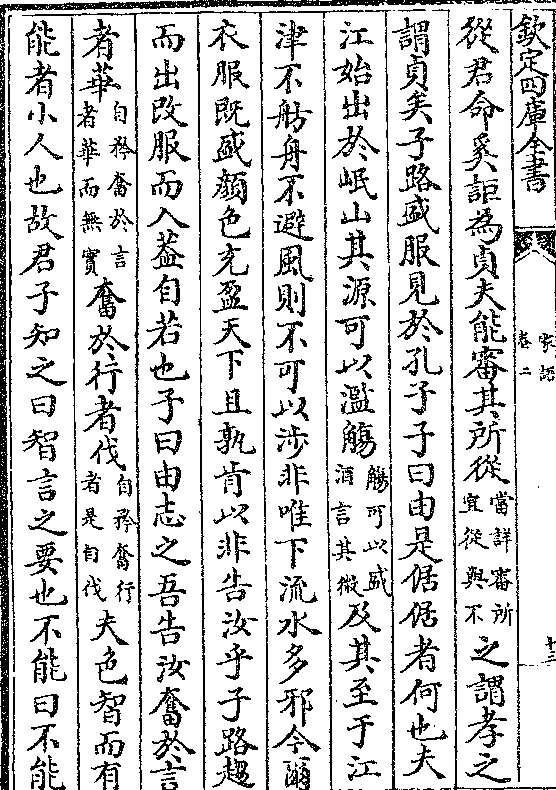 欽定四庫全書
家語
卷二
十三
從君命奚詎為貞夫能審其所從當詳審所宜從與不之謂孝之
謂貞矣子路盛服見於孔子子曰由是倨倨者何也夫
江始出於岷山其源可以濫觴觴可以盛酒言其微及其至于江
津不舫舟不避風則不可以涉非唯下流水多邪今爾
衣服既盛顏色充盈天下且孰肯以非告汝乎子路趨
而出改服而入葢自若也子曰由志之吾告汝奮於言
者華自矜奮於言者華而無實奮於行者伐自矜奮行者是自伐夫色智而有
能者小人也故君子知之曰智言之要也不能曰不能